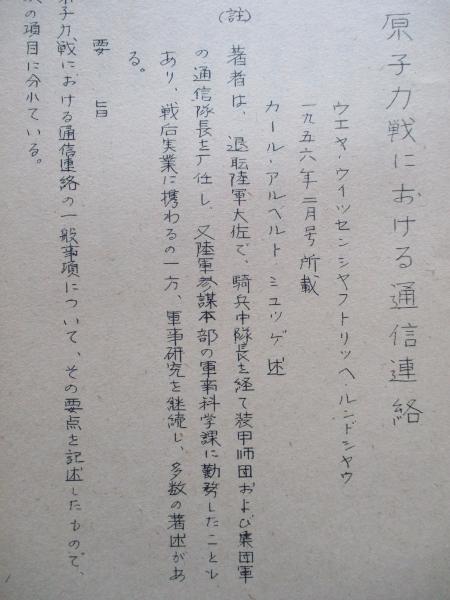 原子力戦における通信連絡
ウエヤ・ウイツセンシヤフトリツヘ・ルンドシヤウ
一九五六年二月号所載
カール・アルベルト・ミユツゲ述
(註)
著者は、退転陸軍大佐で、騎兵中隊長を経て装甲師団および集団軍
の通信隊長を歴任し、又陸軍参謀本部の軍事科学課に勤務したことも
あり、戦后実業に携わるの一方、軍事研究を継続し、多数の著述があ
る。
要旨
原子力戦における通信連絡の一般事項について、その要点を記述したもので、
の項目に分れている。